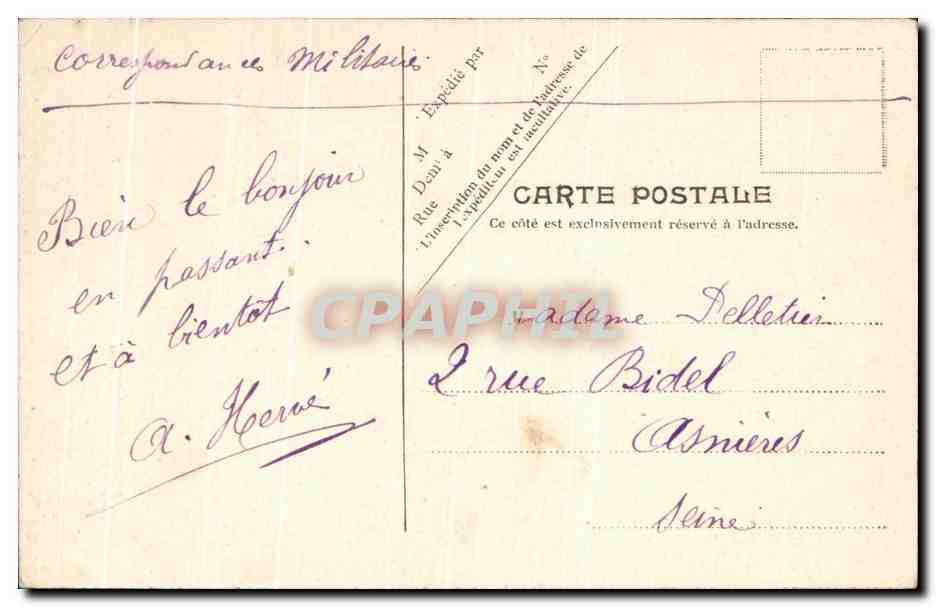 Correspondances Militaires
Bien le bonjour
en passant.
et à bientôt
A. Hervé
Expédié par
M
Dem.t à
Rue
No
L'inscription du nom et de l'adresse de
l'expéditeur est facultative.
CARTE POSTALE
Ce côté est exclusivement réservé à l'adresse.
Madame Pelletier
2 rue Bidel
Asnières
Seine
CPAPHIL